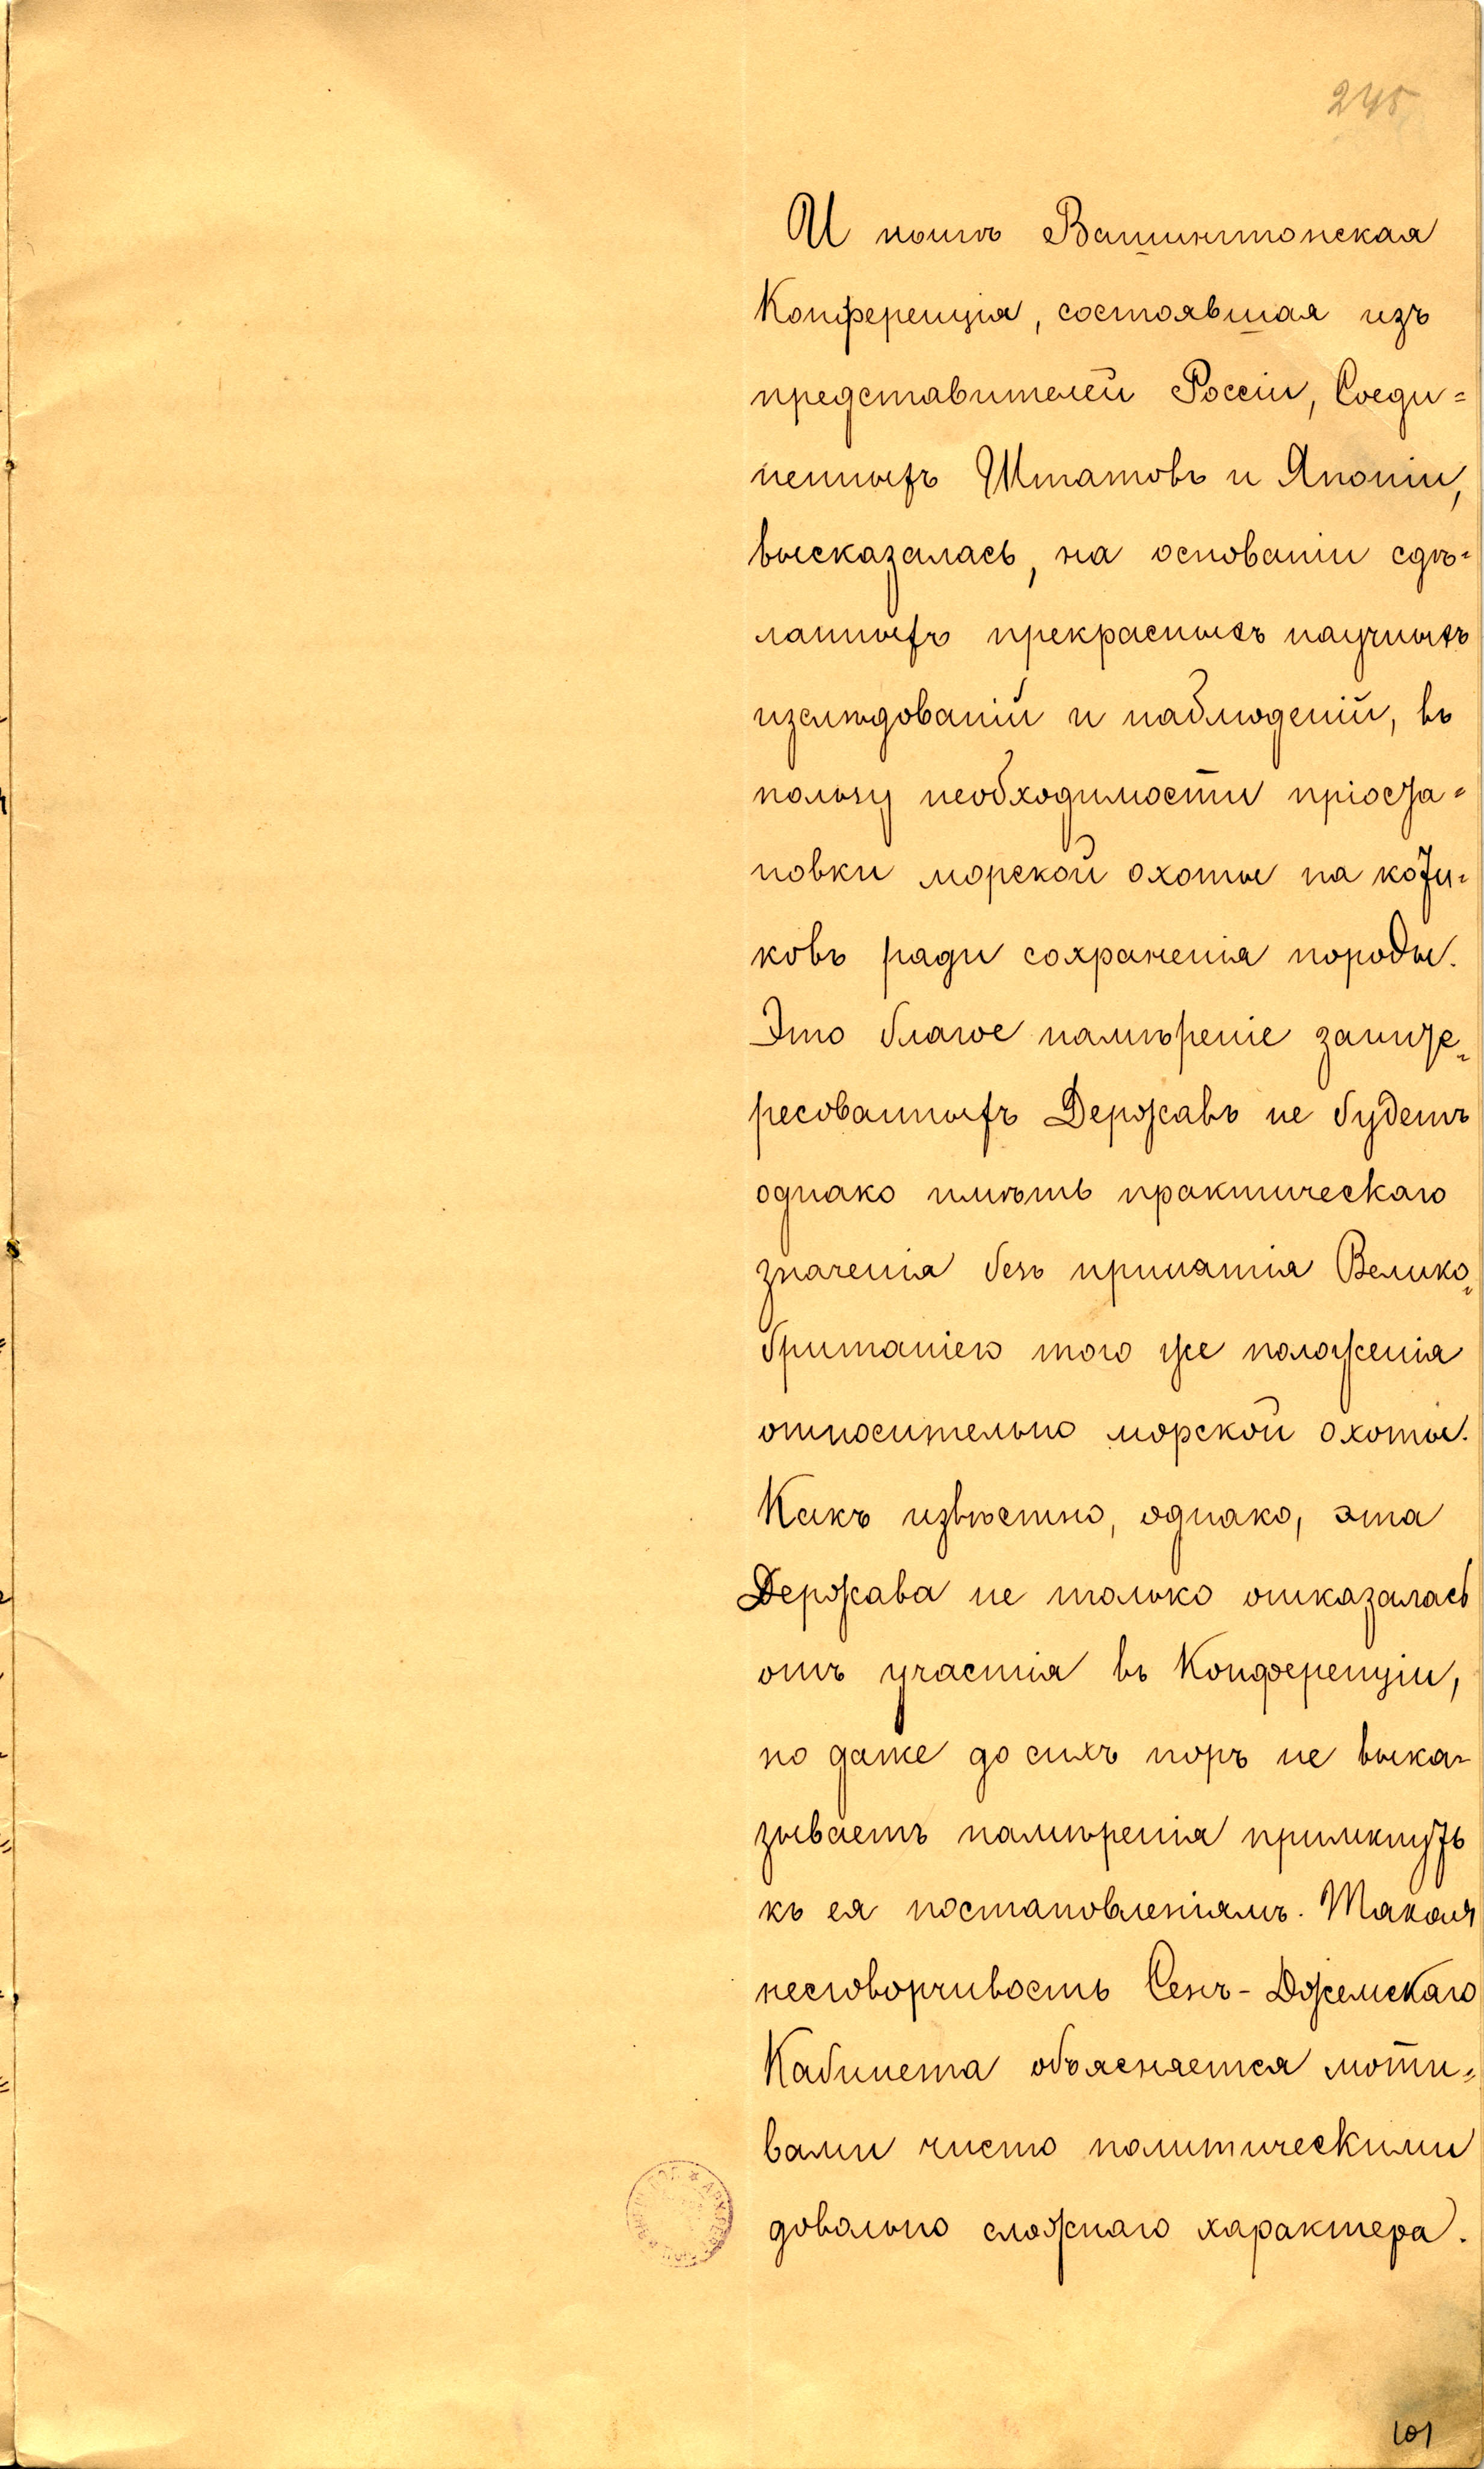 245
И вотъ Вашингтонская
Конференція, состоявшая изъ
представителей Россіи, Соеди=
ненныхъ Штатовъ и Японіи,
высказалась, на основаніи сдѣ=
ланныхъ прекрасныхъ научныхъ
изслѣдованій и наблюденій, въ
пользу необходимости пріоста=
новки морской охоты на коти=
ковъ ради сохраненія породы.
Это благое намѣреніе заинте=
ресованныхъ Державъ не будетъ
однако имѣть практическаго
значенія безъ принятія Велико=
британіею того же положенія
относительно морской охоты.
Какъ извѣстно, однако, эта
Держава не только отказалась
отъ участія въ Конференціи,
но даже до сихъ поръ не выка=
зываетъ намѣренія примкнуть
къ ея постановленіямъ. Такая
несговорчивость Сенъ-Джемскаго
Кабинета объясняется моти=
вами чисто политическими
довольно сложнаго характера.
101